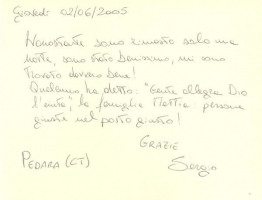 Giovedì 02/06/2005
Nonostante sono rimasto solo una
notte, sono stato benissimo, mi sono
trovato davvero bene!
Qualcuno ha detto: "Gente allegra Dio
l'aiuta", la famiglia Mattia: persone
giuste nel posto giusto!
GRAZIE
PEDARA (CT) Sergio